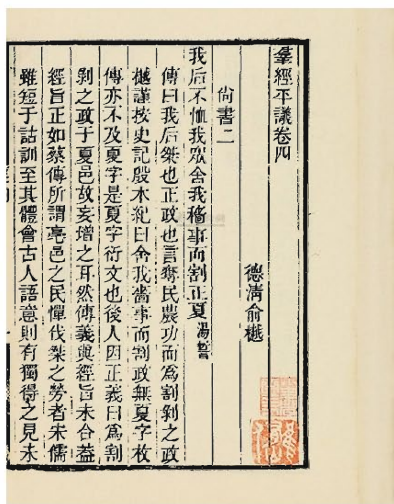 羣經平議卷四
德清俞樾
尚書二
我后不恤我眾舍我穡事而割正夏 湯誓
傳曰我后桀也正政也言奪民農功而爲割剝之政
樾謹按史記殷本紀曰舍我嗇事而割政無夏字枚
傳亦不及夏字是夏字衍文也後人因正義曰爲割
剝之政于夏邑故妄增之耳然傳義與經旨未合葢
經旨正如蔡傳所謂亳邑之民憚伐桀之勞者宋儒
雖短于詁訓至其體會古人語意則有獨得之見未